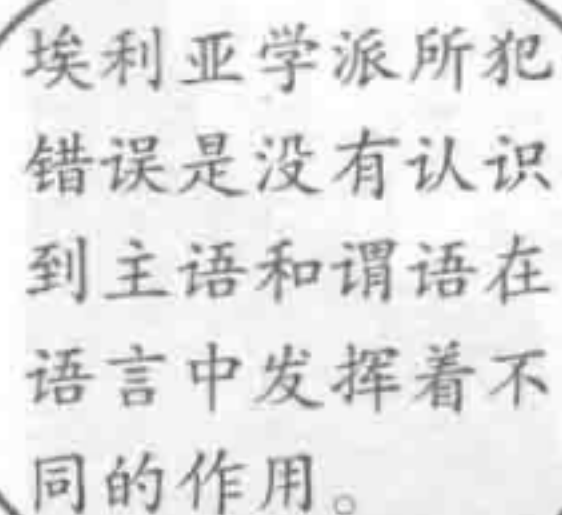 埃利亚学派所犯
错误是没有认识
到主语和谓语在
语言中发挥着不
同的作用。